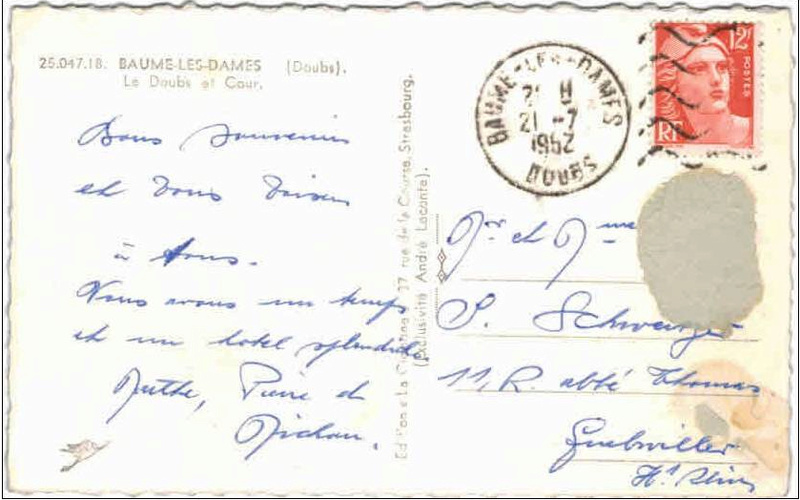 25.047.18. BAUME-LES-DAMES (Doubs).
Le Doubs et Cour.
Bons Souvenirs
et Bons Baisers
à tous.
Nous avons un temps
et un hotel splendide
Marthe, Pierre et
Edition "La Cigogne" 37 rue de la Course, Strasbourg.
(Exclusivité André Laconte).
BAUME-LES-DAMES
21 -7
1952
DOUBS
12F
POSTES
RF
Mr et Mme
P. Schweitzer
11, R. abbé Thomas
Guebwiller
Ht Rhin